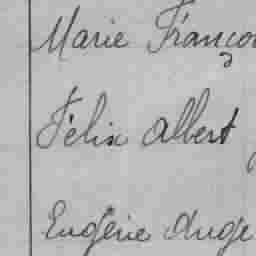 Marie Franço
Félix Albert
Eugénie Ange